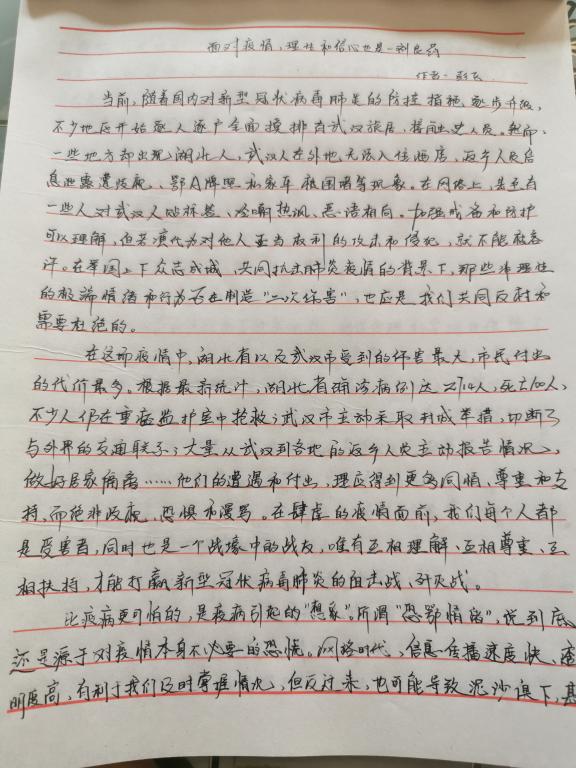 面对疫情,理性和信心也是一剂良药
作者:
当前,随着国内对新型冠状病毒肺炎的防控措施逐步升级,
不少地区开始逐人逐户全面摸排有武汉旅居、接触史人员。然而,
一些地方却出现湖北人、武汉人在外地无法入住酒店、返乡人员信
息泄露遭歧视、鄂A牌照私家车被围堵等现象。在网络上,甚至有
一些人对武汉人贴标签、冷嘲热讽、恶语相向。加强戒备和防护
可以理解,但若演化为对他人正当权利的攻击和侵犯,就不能被容
许。在举国上下众志成城、共同抗击肺炎疫情的背景下,那些非理性
的极端情绪和行为不止制造“二次伤害”,也应是我们共同反对和
需要杜绝的。
在这场疫情中,湖北省以及武汉市受到的伤害最大,市民付出
的代价最多。根据最新统计,湖北省确诊病例达2714人,死亡100人,
不少人仍在重症监护室中抢救;武汉市主动采取封城举措,切断了
与外界的交通联系;大量从武汉到各地的返乡人员主动报告情况、
做好居家隔离……他们的遭遇和付出,理应得到更多同情、尊重和支
持,而绝非歧视、恐惧和谩骂。在肆虐的疫情面前,我们每个人都
是受害者,同时也是一个战壕中的战友,唯有互相理解、互相尊重、互
相扶持,才能打赢新型冠状病毒肺炎的阻击战、歼灭战。
比疫病更可怕的,是疫病引起的“想象”。所谓“恐鄂情绪”,说到底
还是源于对疫情本身不必要的恐慌。网络时代,信息传播速度快、透
明度高,有利于我们及时掌握情况,但反过来,也可能导致泥沙俱下,甚